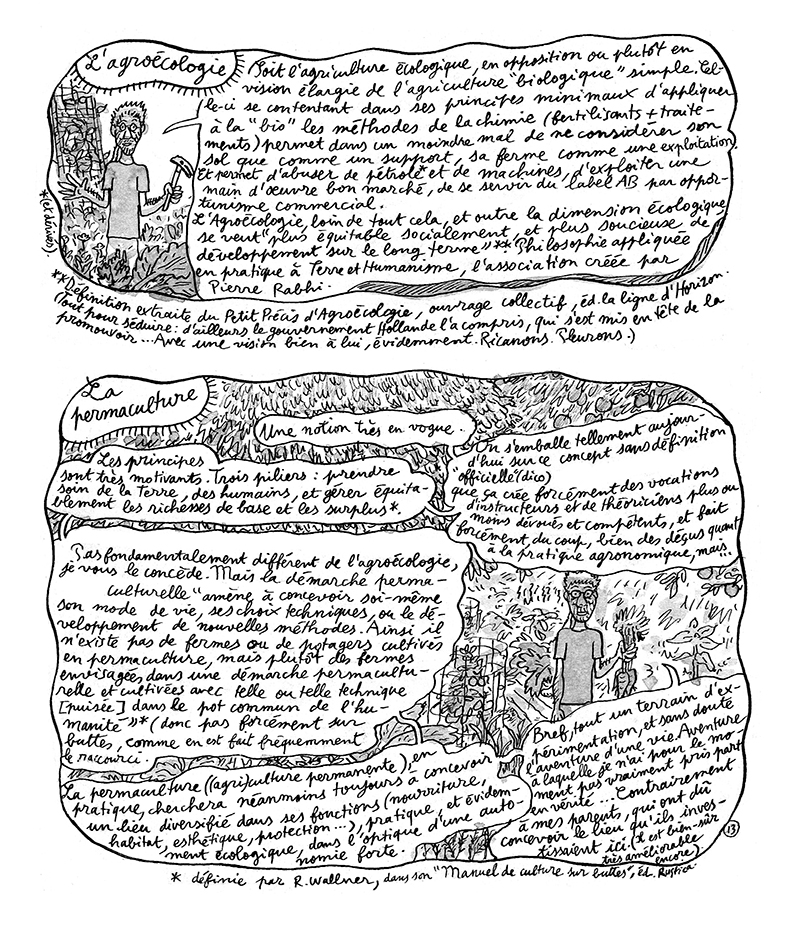 L'agroécologie
Soit l'agriculture écologique, en opposition ou plutôt en
vision élargie de l'agriculture "biologique" simple. Cel-
le-ci se contentant dans ses principes minimaux d'appliquer
à la "bio" les méthodes de la chimie (fertilisants + traite-
ments) permet dans un moindre mal de ne considérer son
sol que comme un support, sa ferme comme une exploitation.
Et permet d'abuser de pétrole* et de machines, d'exploiter une
main d'œuvre bon marché, de se servir du label AB par oppor-
tunisme commercial.
L'Agroécologie, loin de tout cela, et outre la dimension écologique,
se veut "plus équitable socialement, et plus soucieuse de
développement sur le long terme»**. Philosophie appliquée
en pratique à Terre et Humanisme, l'association créée par
Pierre Rabhi.
*(et dérivés).
**Définition extraite du Petit Précis d'Agroécologie, ouvrage collectif, éd. la ligne d'Horizon.
(Tout pour séduire: d'ailleurs le gouvernement Hollande l'a compris, qui s'est mis en tête de la
promouvoir... Avec une vision bien à lui, évidemment. Ricanons. Pleurons.)
La
permaculture
Une notion très en vogue.
Les principes
sont très motivants. Trois piliers : prendre
soin de la Terre, des humains, et gérer équita-
blement les richesses de base et les surplus*.
On s'emballe tellement aujour-
d'hui sur ce concept sans définition
"officielle" (dico)
que ça crée forcément des vocations
d'instructeurs et de théoriciens plus ou
moins dévoués et compétents, et fait
forcément, du coup, bien des déçus quant
à la pratique agronomique, mais...
Pas fondamentalement différent de l'agroécologie,
je vous le concède. Mais la démarche perma-
culturelle "amène à concevoir soi-même
son mode de vie, ses choix techniques, ou le dé-
veloppement de nouvelles méthodes. Ainsi il
n'existe pas de fermes ou de potagers cultivés
en permaculture, mais plutôt des fermes
envisagées dans une démarche permacultu-
relle et cultivées avec telle ou telle technique
[puisée] dans le pot commun de l'hu-
manité»* (donc pas forcément sur
buttes, comme en est fait fréquemment
le raccourci.
La permaculture ((agri)culture permanente), en
pratique, cherchera néanmoins toujours à concevoir
un lieu diversifié dans ses fonctions (nourriture,
habitat, esthétique, protection...), pratique, et évidem-
ment écologique, dans l'optique d'une auto-
nomie forte.
Bref, tout un terrain d'ex-
périmentation, et sans doute
l'aventure d'une vie. Aventure
à laquelle je n'ai pour le mo-
ment pas vraiment pris part
en vérité... Contrairement
à mes parents, qui ont dû
concevoir le lieu qu'ils inves-
tissaient ici. (il est bien-sûr
très améliorable
encore).
13
* définie par R. Wallner, dans son "Manuel de culture sur buttes", éd. Rustica.